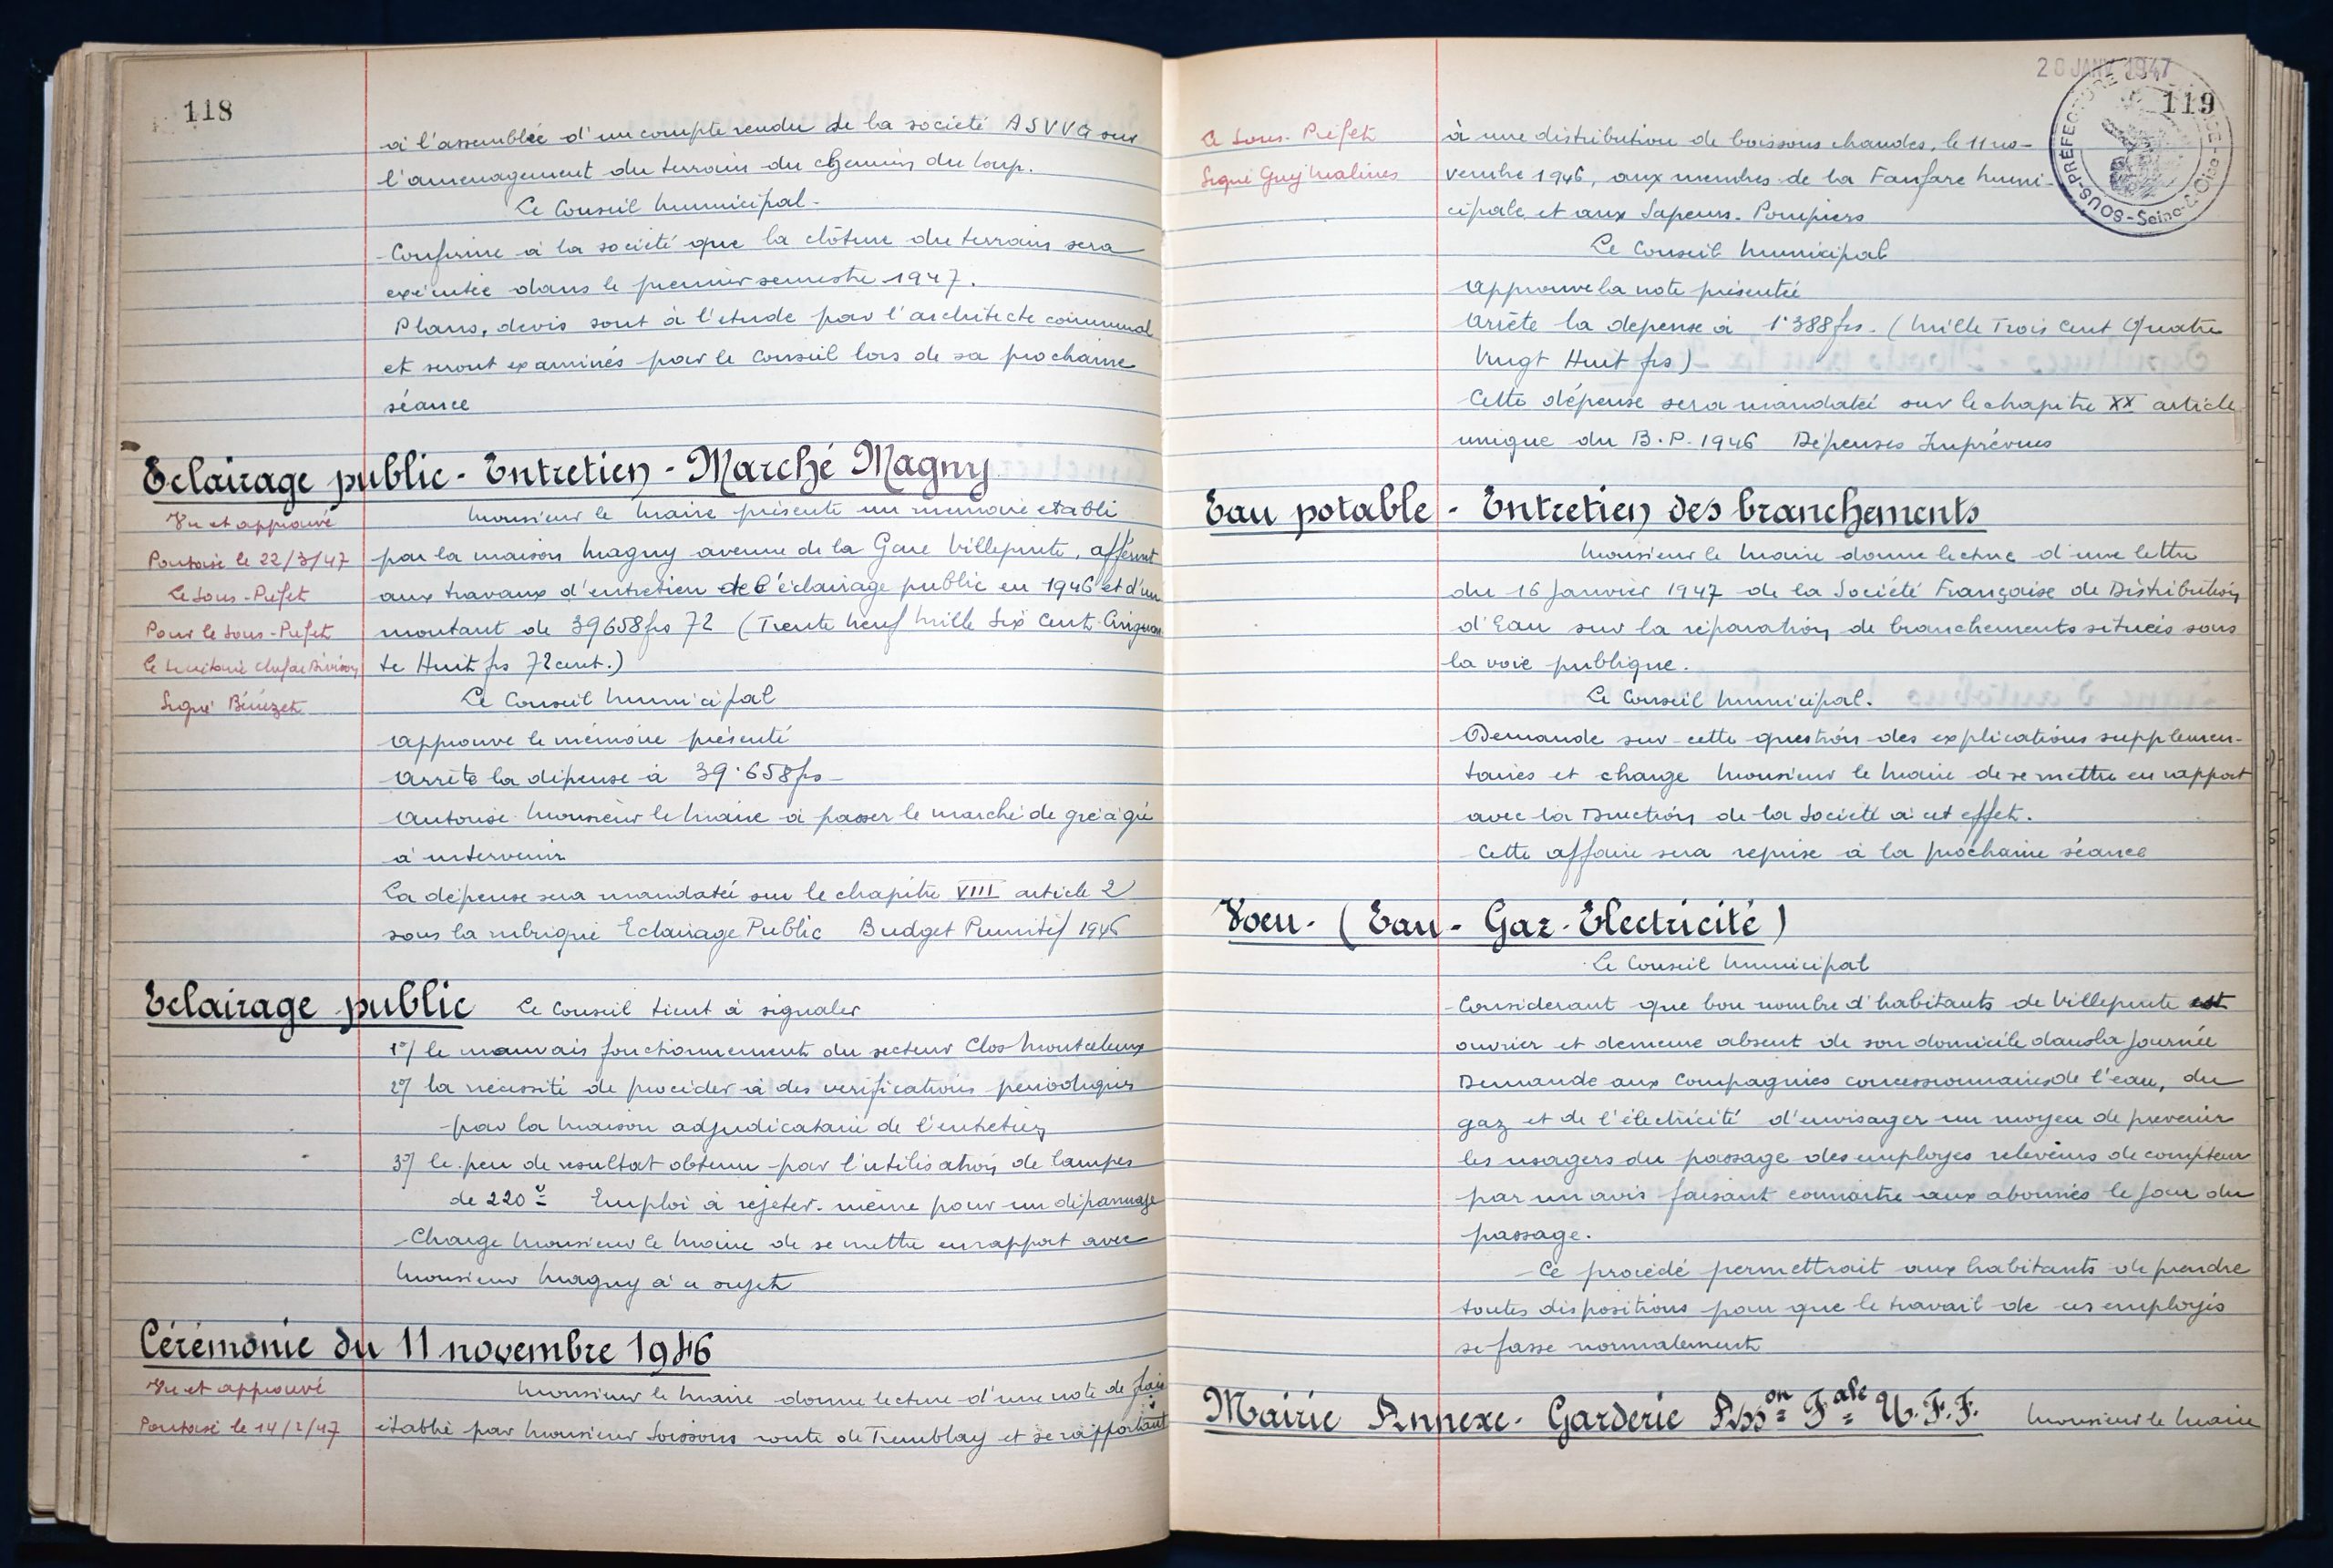 118
à l'assemblée d'un compte rendu de la société ASVVG sur
l'aménagement du terrain du chemin du Loup.
Le Conseil Municipal.
Confirme à la société que la clôture du terrain sera
exécutée dans le premier semestre 1947.
Plans, devis sont à l'étude par l'architecte communal
et seront examinés par le Conseil lors de sa prochaine
séance
Eclairage public - Entretien - Marché Magny
Vu et approuvé
Pontoise le 22/3/47
Le Sous-Préfet
Pour le Sous-Préfet
Le secrétaire chef de Division
Signé Bénézet
Monsieur le Maire présente un mémoire établi
par la maison Magny avenue de la Gare Villepinte, afférent
aux travaux d'entretien de l'éclairage public en 1946 et d'un
montant de 39658 frs 72 (Trente Neuf Mille Six Cent Cinquan
te Huit frs 72 cent.)
Le Conseil Municipal
Approuve le mémoire présenté
Arrête la dépense à 39.658 frs
Autorise Monsieur le Maire à passer le marché de gré à gré
à intervenir
La dépense sera mandatée sur le chapitre VIII article 2
sous la rubrique Eclairage Public Budget Primitif 1946
Eclairage public Le Conseil tient à signaler
1°/ le mauvais fonctionnement du secteur Clos Montceleux
2°/ la nécessité de procéder à des vérifications périodiques
par la Maison adjudicataire de l'entretien
3°/ le peu de résultat obtenu par l'utilisation de lampes
de 220 v Emploi à rejeter même pour un dépannage
Charge Monsieur le Maire de se mettre en rapport avec
Monsieur Magny à ce sujet
Cérémonie du 11 novembre 1946
Vu et approuvé
Pontoise le 14/2/47
Monsieur le Maire donne lecture d'une note de frais
établie par Monsieur Soissons route de Tremblay et se rapportant
20 JANV 1947
119
SOUS-PRÉFECTURE
Seine-&-Oise
Le Sous-Préfet
Signé Guy Malines
à une distribution de boissons chaudes, le 11 no-
vembre 1946, aux membres de la Fanfare Muni-
cipale et aux Sapeurs-Pompiers
Le Conseil Municipal
Approuve la note présentée
Arrête la dépense à 1.388 frs. (Mille Trois Cent Quatre
Vingt Huit frs)
Cette dépense sera mandatée sur le chapitre XX article
unique du B.P. 1946 Dépenses Imprévues
Eau potable - Entretien des branchements
Monsieur le Maire donne lecture d'une lettre
du 16 Janvier 1947 de la Société Française de Distribution
d'Eau sur la réparation de branchements situés sous
la voie publique.
Le Conseil Municipal.
Demande sur cette question des explications supplémen-
taires et charge Monsieur le Maire de se mettre en rapport
avec la Direction de la Société à cet effet.
Cette affaire sera reprise à la prochaine séance
Voeu - (Eau - Gaz - Electricité)
Le Conseil Municipal
Considérant que bon nombre d'habitants de Villepinte est
ouvrier et demeure absent de son domicile dans la journée
Demande aux Compagnies concessionnaires de l'eau, du
gaz et de l'électricité d'envisager un moyen de prévenir
les usagers du passage des employés releveurs de compteur
par un avis faisant connaitre aux abonnés le jour du
passage.
Ce procédé permettrait aux habitants de prendre
toutes dispositions pour que le travail de ces employés
se fasse normalement
Mairie Annexe - Garderie Asson Fale U.F.F. Monsieur le Maire